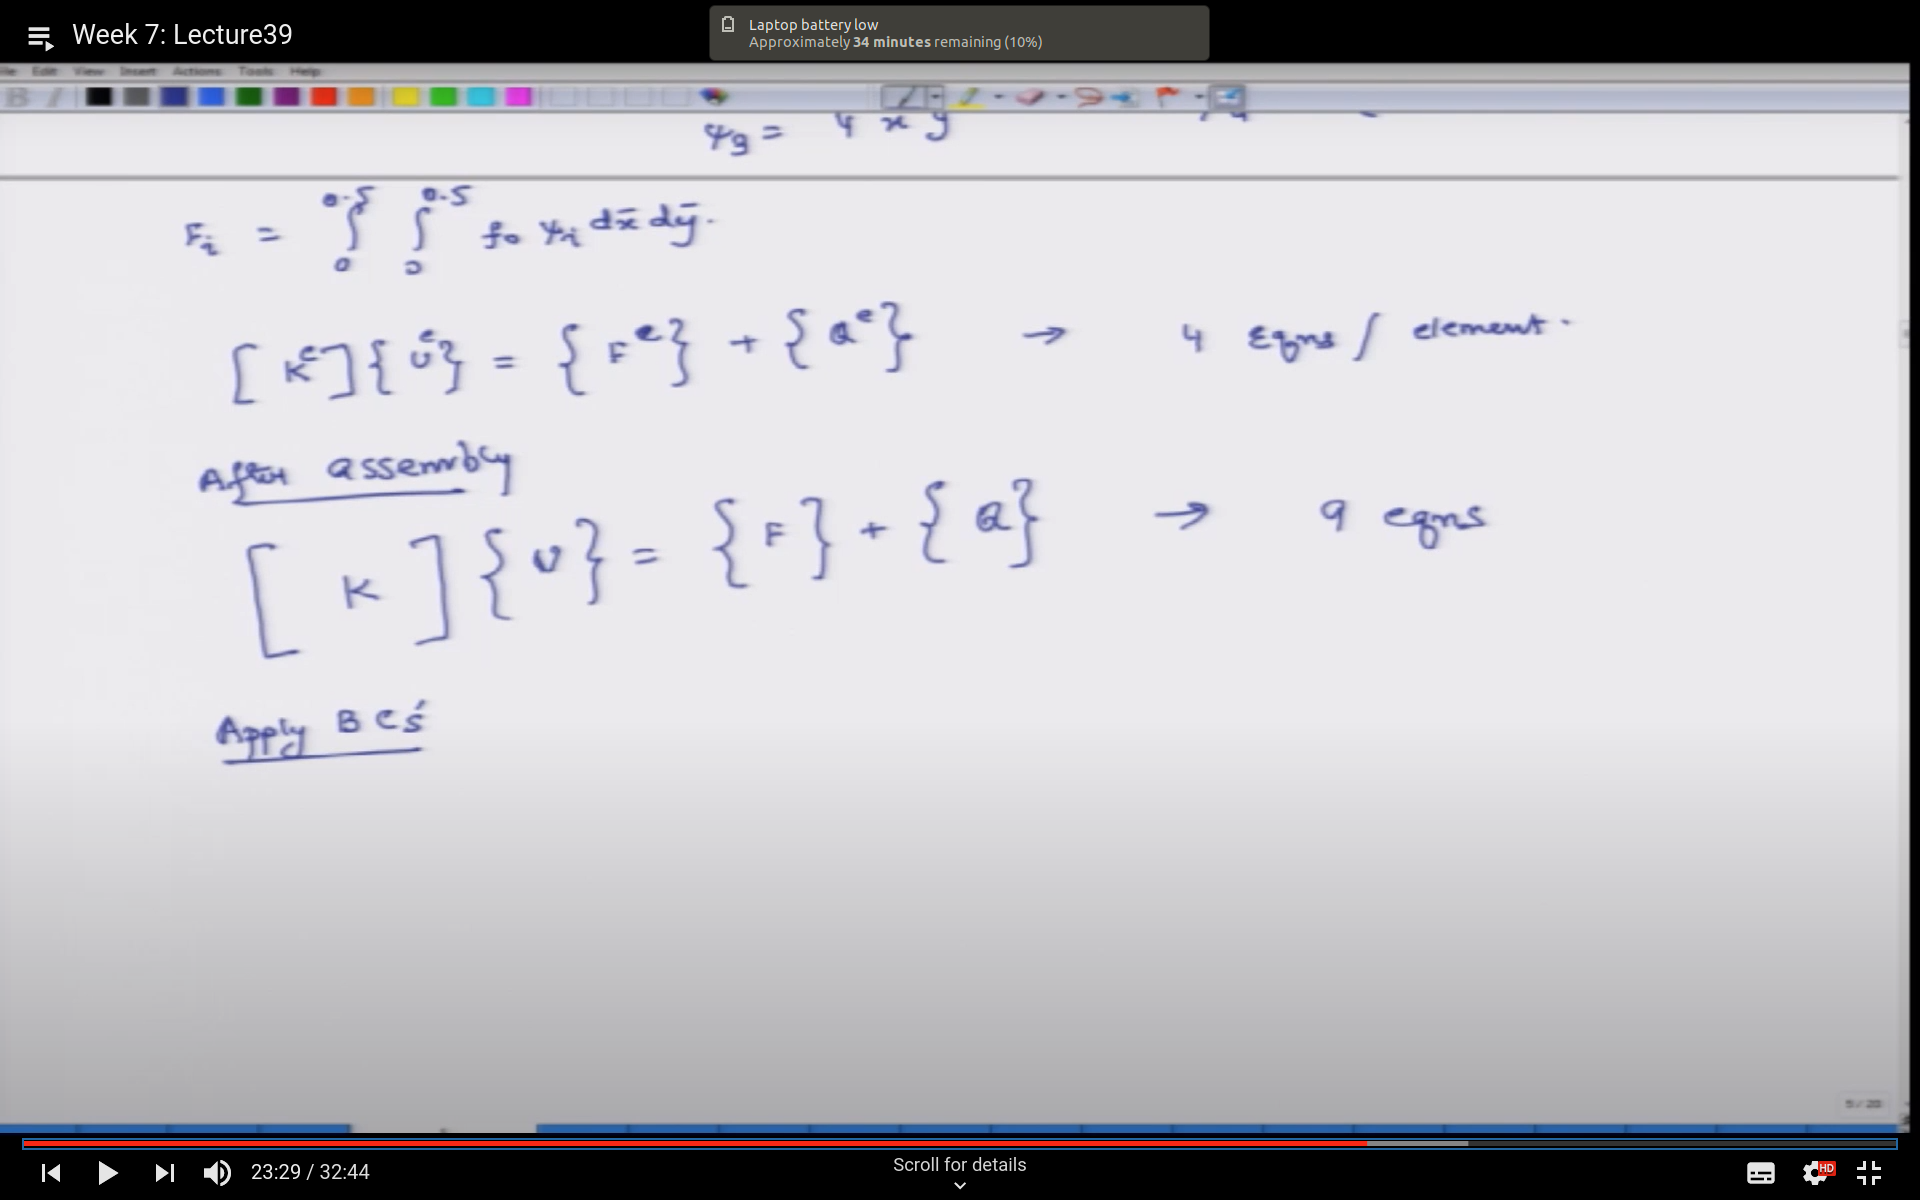 Week 7: Lecture39
Laptop battery low
Approximately 34 minutes remaining (10%)
Edit View Insert Actions Tools Help
ψ3 = 4 x̄ ȳ
Fi = ∫₀^0.5 ∫₀^0.5 f0 ψi dx̄ dȳ.
[Kᵉ]{Uᵉ} = {Fᵉ} + {Qᵉ} → 4 Eqns / element.
After assembly
[K]{U} = {F} + {Q} → 9 eqns
Apply BCs'
5 / 20
23:29 / 32:44
Scroll for details
HD